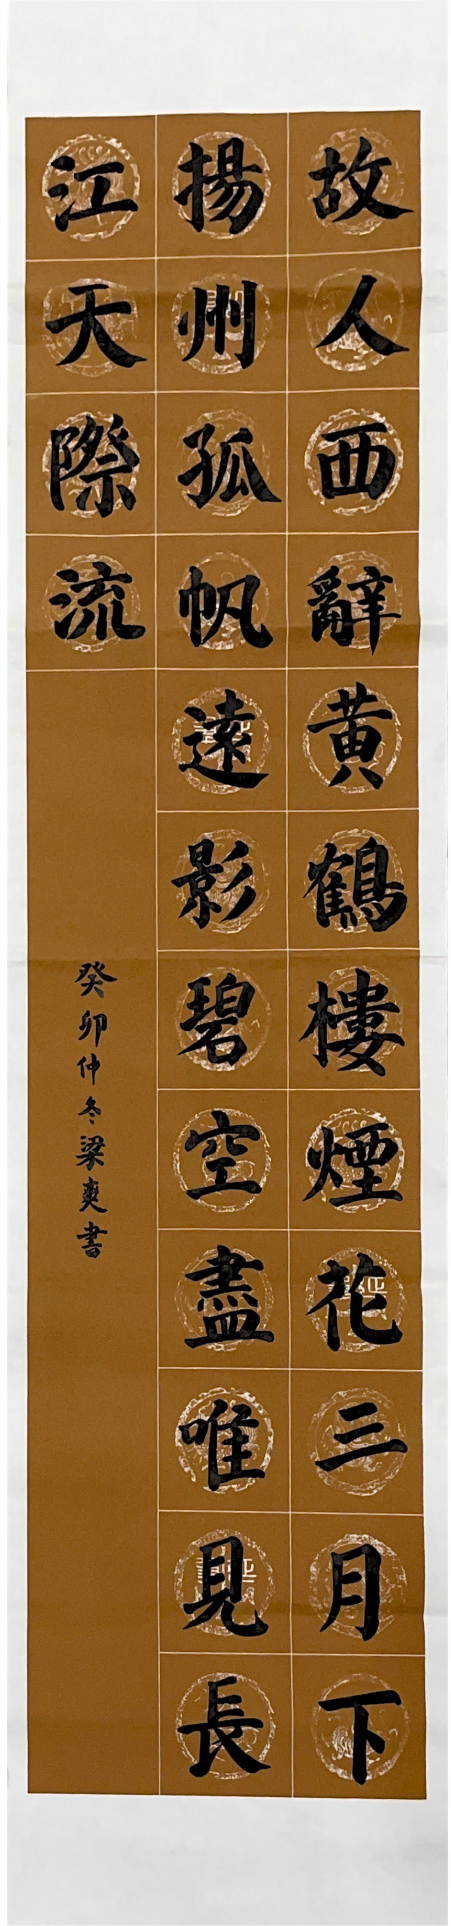 故人西辭黄鶴樓煙花三月下
揚州孤帆遠影碧空盡唯見長
江天際流
癸卯仲冬梁爽書